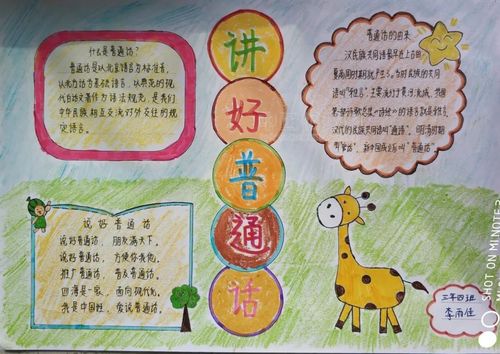 讲好普通话
什么是普通话?
普通话是以北京语言为标准音,
以北方话为基础语言,以典范的现
代白话文著作为语法规范,是我们
中华民族相互交流对外交往的规
定语言。
普通话的由来
汉民族共同语最早在上古的
夏商周时期就产生了。当时民族的共同
语叫“雅言”,主要流行于黄河流域,我国
第一部诗歌总集《诗经》的语言就是雅言。
汉代的民族共同语叫“通语”。明清时期
叫“官话”,新中国成立后叫“普通话”。
说好普通话
说好普通话,朋友满天下。
说好普通话,方便你我他。
推广普通话,普及普通话。
四海是一家,面向现代化。
我是中国娃,爱说普通话。
三年四班
李雨佳
SHOT ON MI NOTE 3